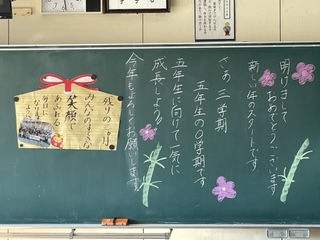 明けまして
おめでとうございます
新しい年のスタートです
さあ三学期
五年生の〇学期です
五年生に向けて一気に
成長しよう
今年もよろしくお願いします
残りの
みんなの
あふれる
笑顔